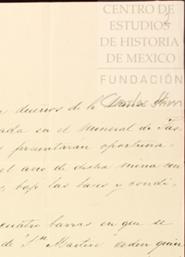 CENTRO DE
ESTUDIOS
DE HISTORIA
DE MEXICO
FUNDACIÓN
Carlos Slim
dueños de la
en el Mineral de Tas
presentaran oportuna
el avio de dicha mina con
bajo las bases y condi
cuatro barras en que se
de Sn Mateo ceden quin